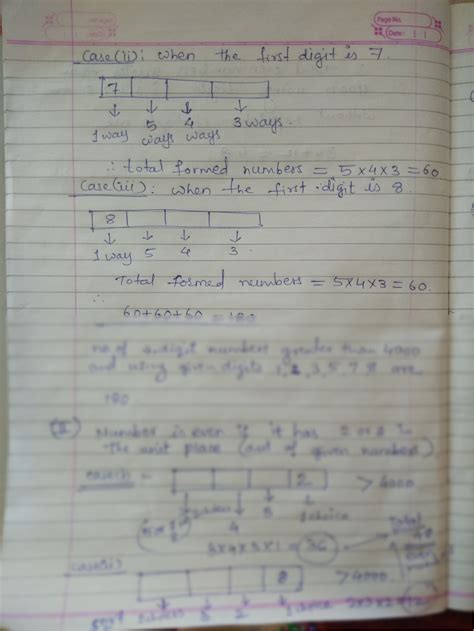 Page No.
Date: | |
Case(ii): when the first digit is 7.
7
↓ ↓ ↓ ↓
1 way 5 ways 4 ways 3 ways.
∴ total formed numbers = 5×4×3=60
Case(iii): when the first digit is 8.
8
↓ ↓ ↓ ↓
1 way 5 4 3.
Total formed numbers = 5×4×3=60.
∴
60+60+60 = 180
no. of 4-digit numbers greater than 4000
and using given digits 1,2,3,5,7,8 are
180
(II) Number is even if it has 2 or 8
the unit place (out of given numbers)
2 > 4000
4 3 1 choice
3×4×3×1 = 36
8 > 4000